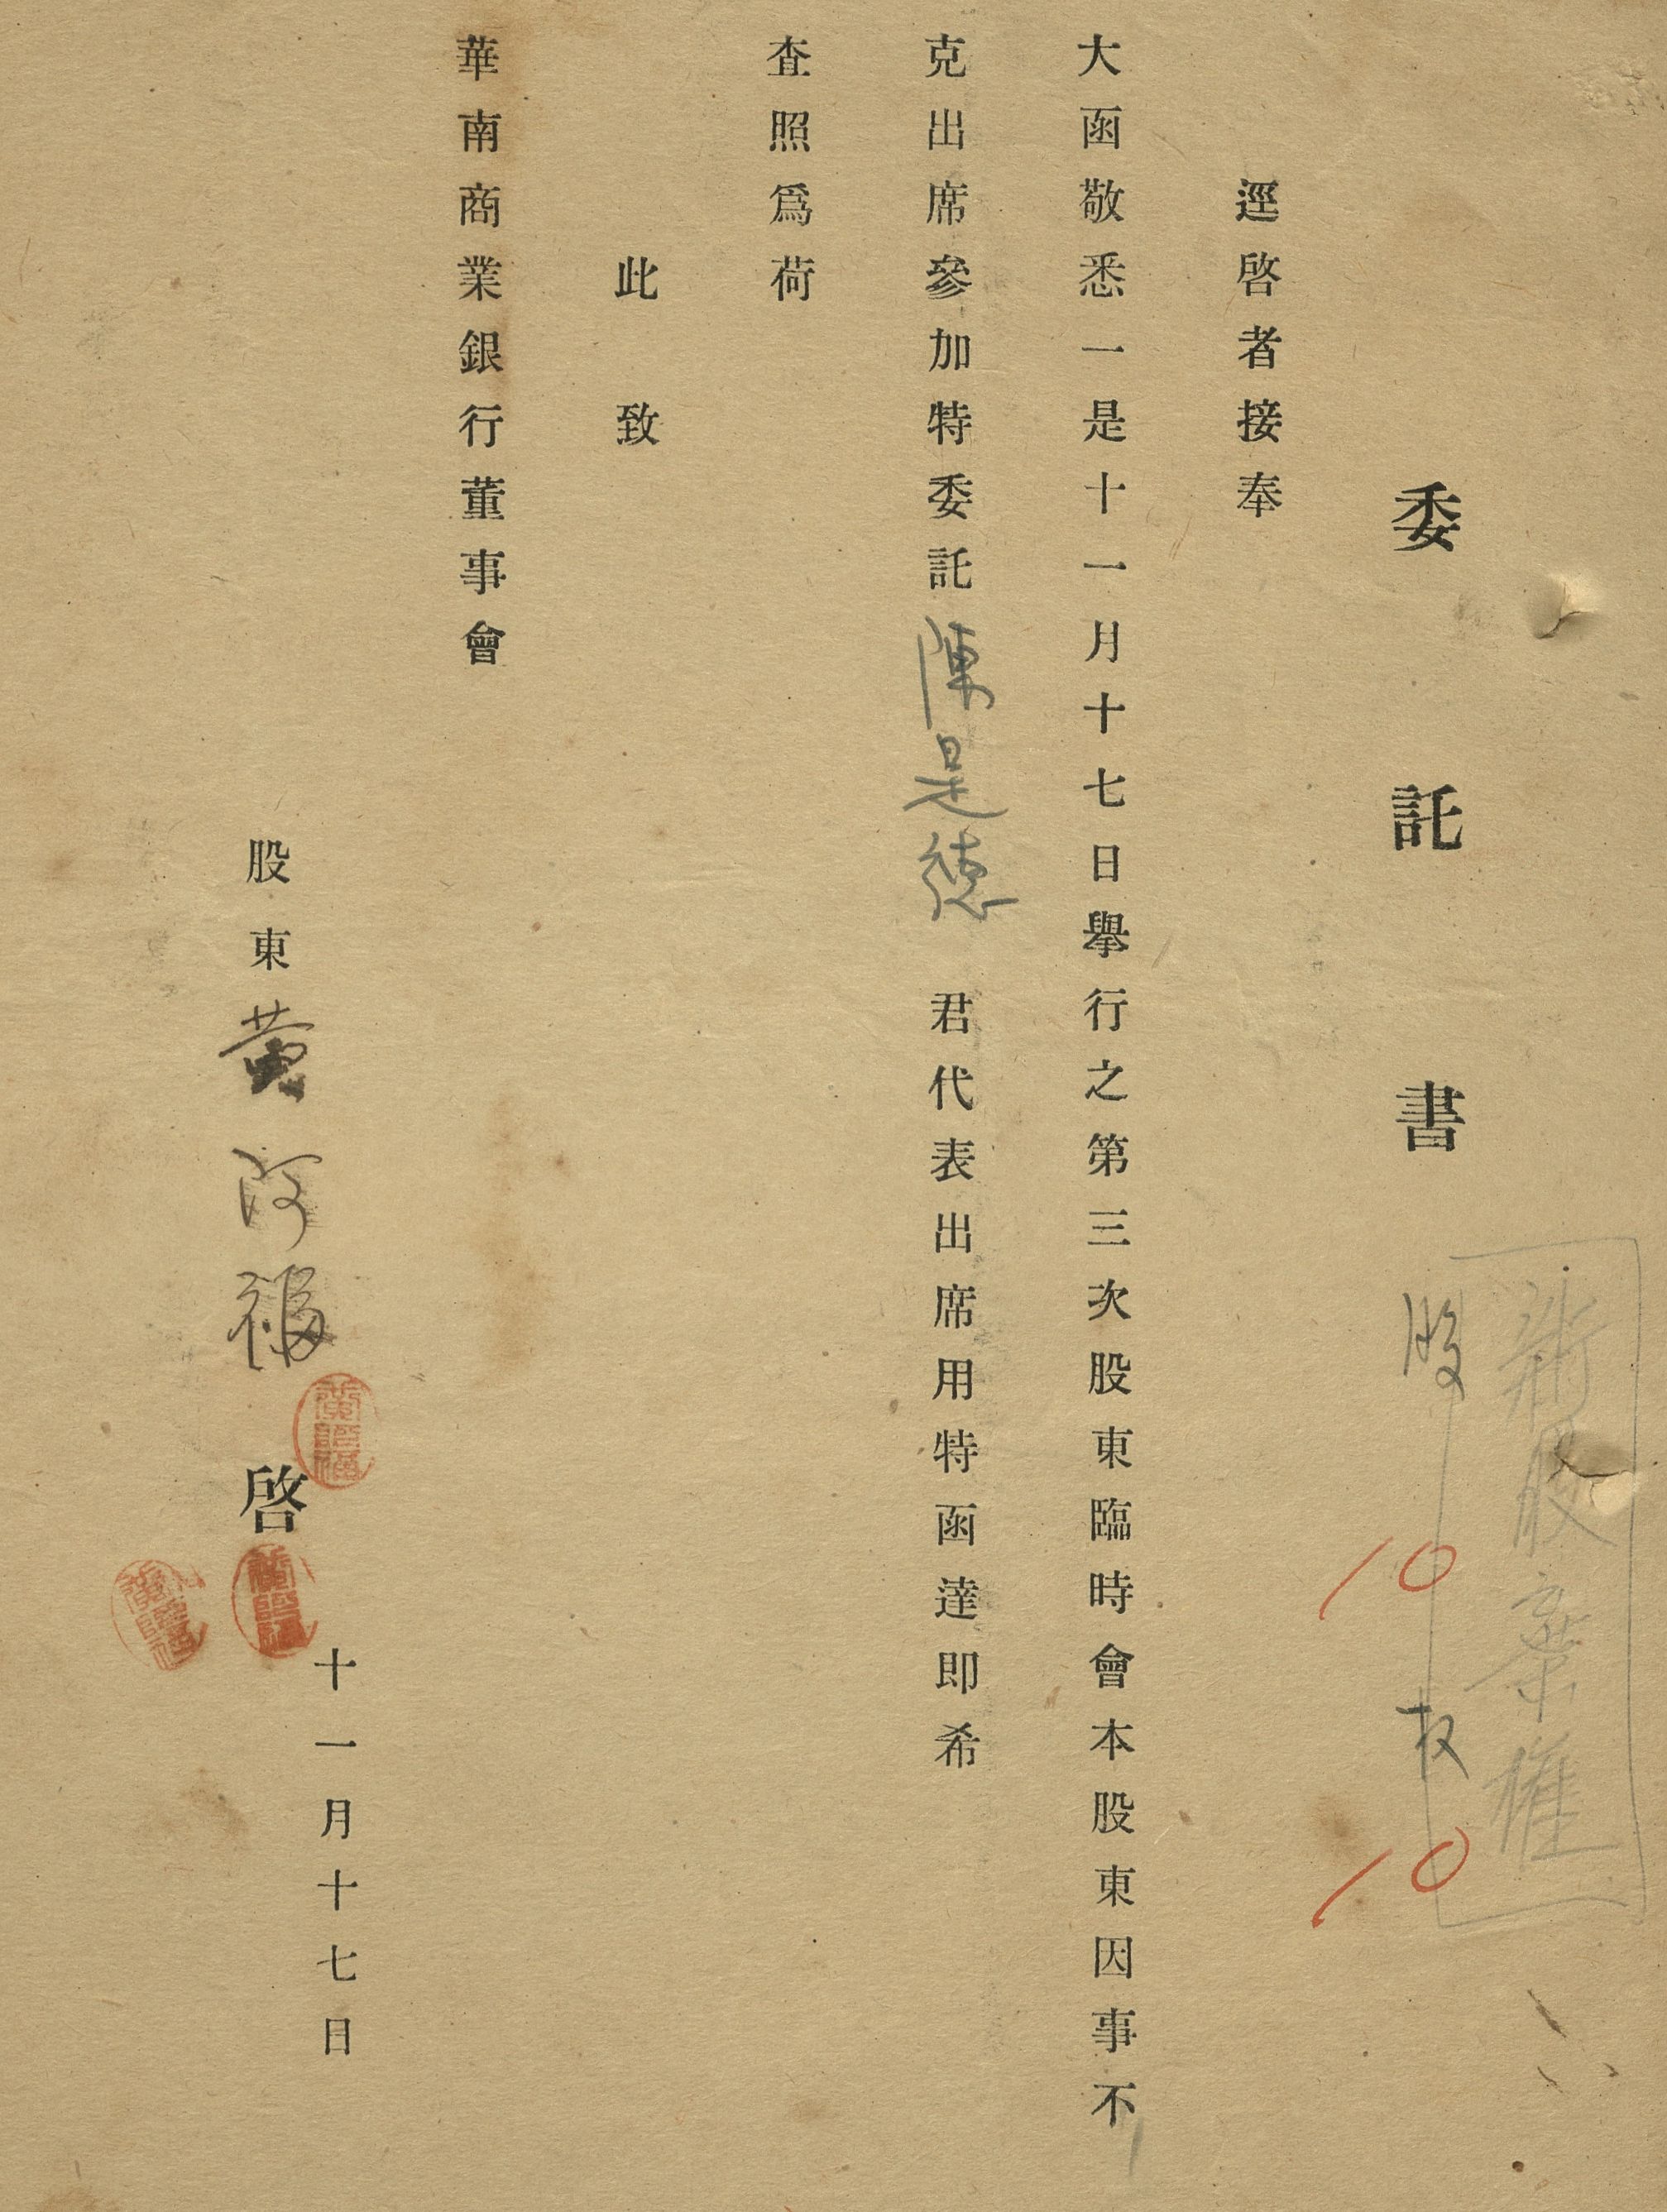 新股棄權
股 10 权 10
委託書
逕啓者接奉
大函敬悉一是十一月十七日舉行之第三次股東臨時會本股東因事不
克出席參加特委託陳是德 君代表出席用特函達即希
查照爲荷
此致
華南商業銀行董事會
十一月十七日
股東 黄阿福 啓